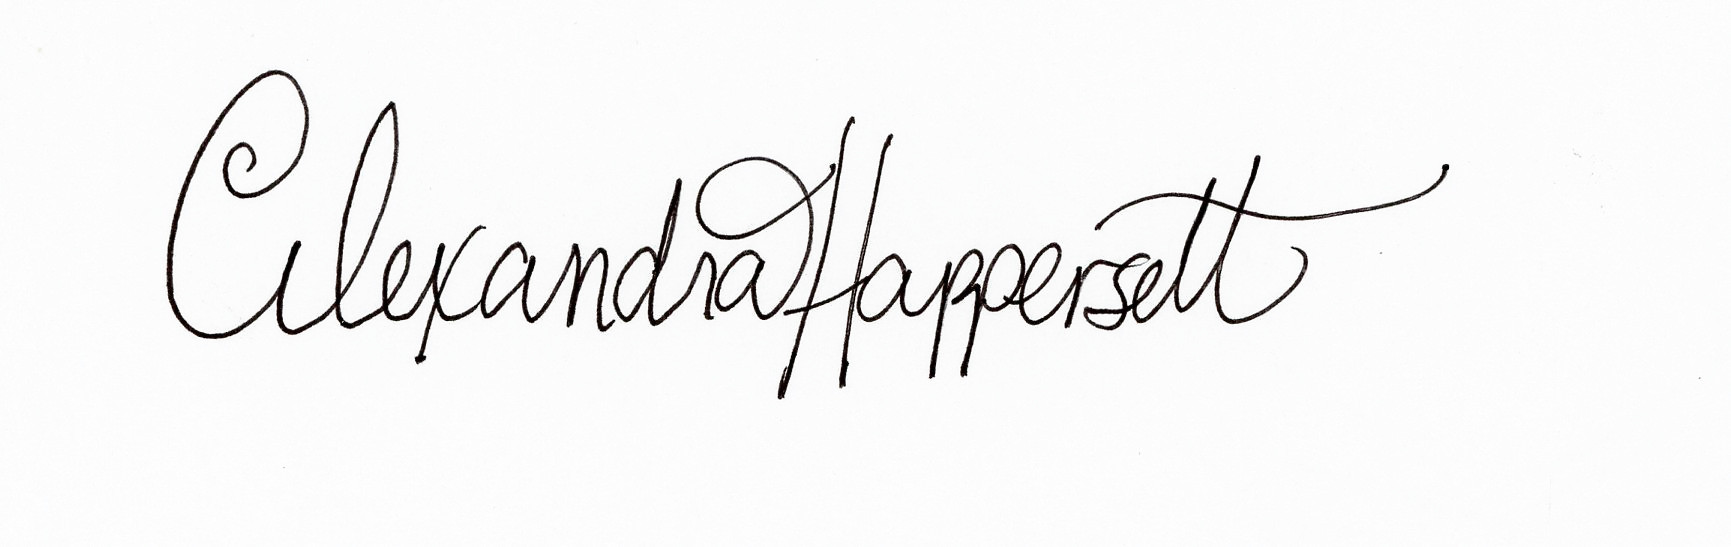 Alexandra Happersett